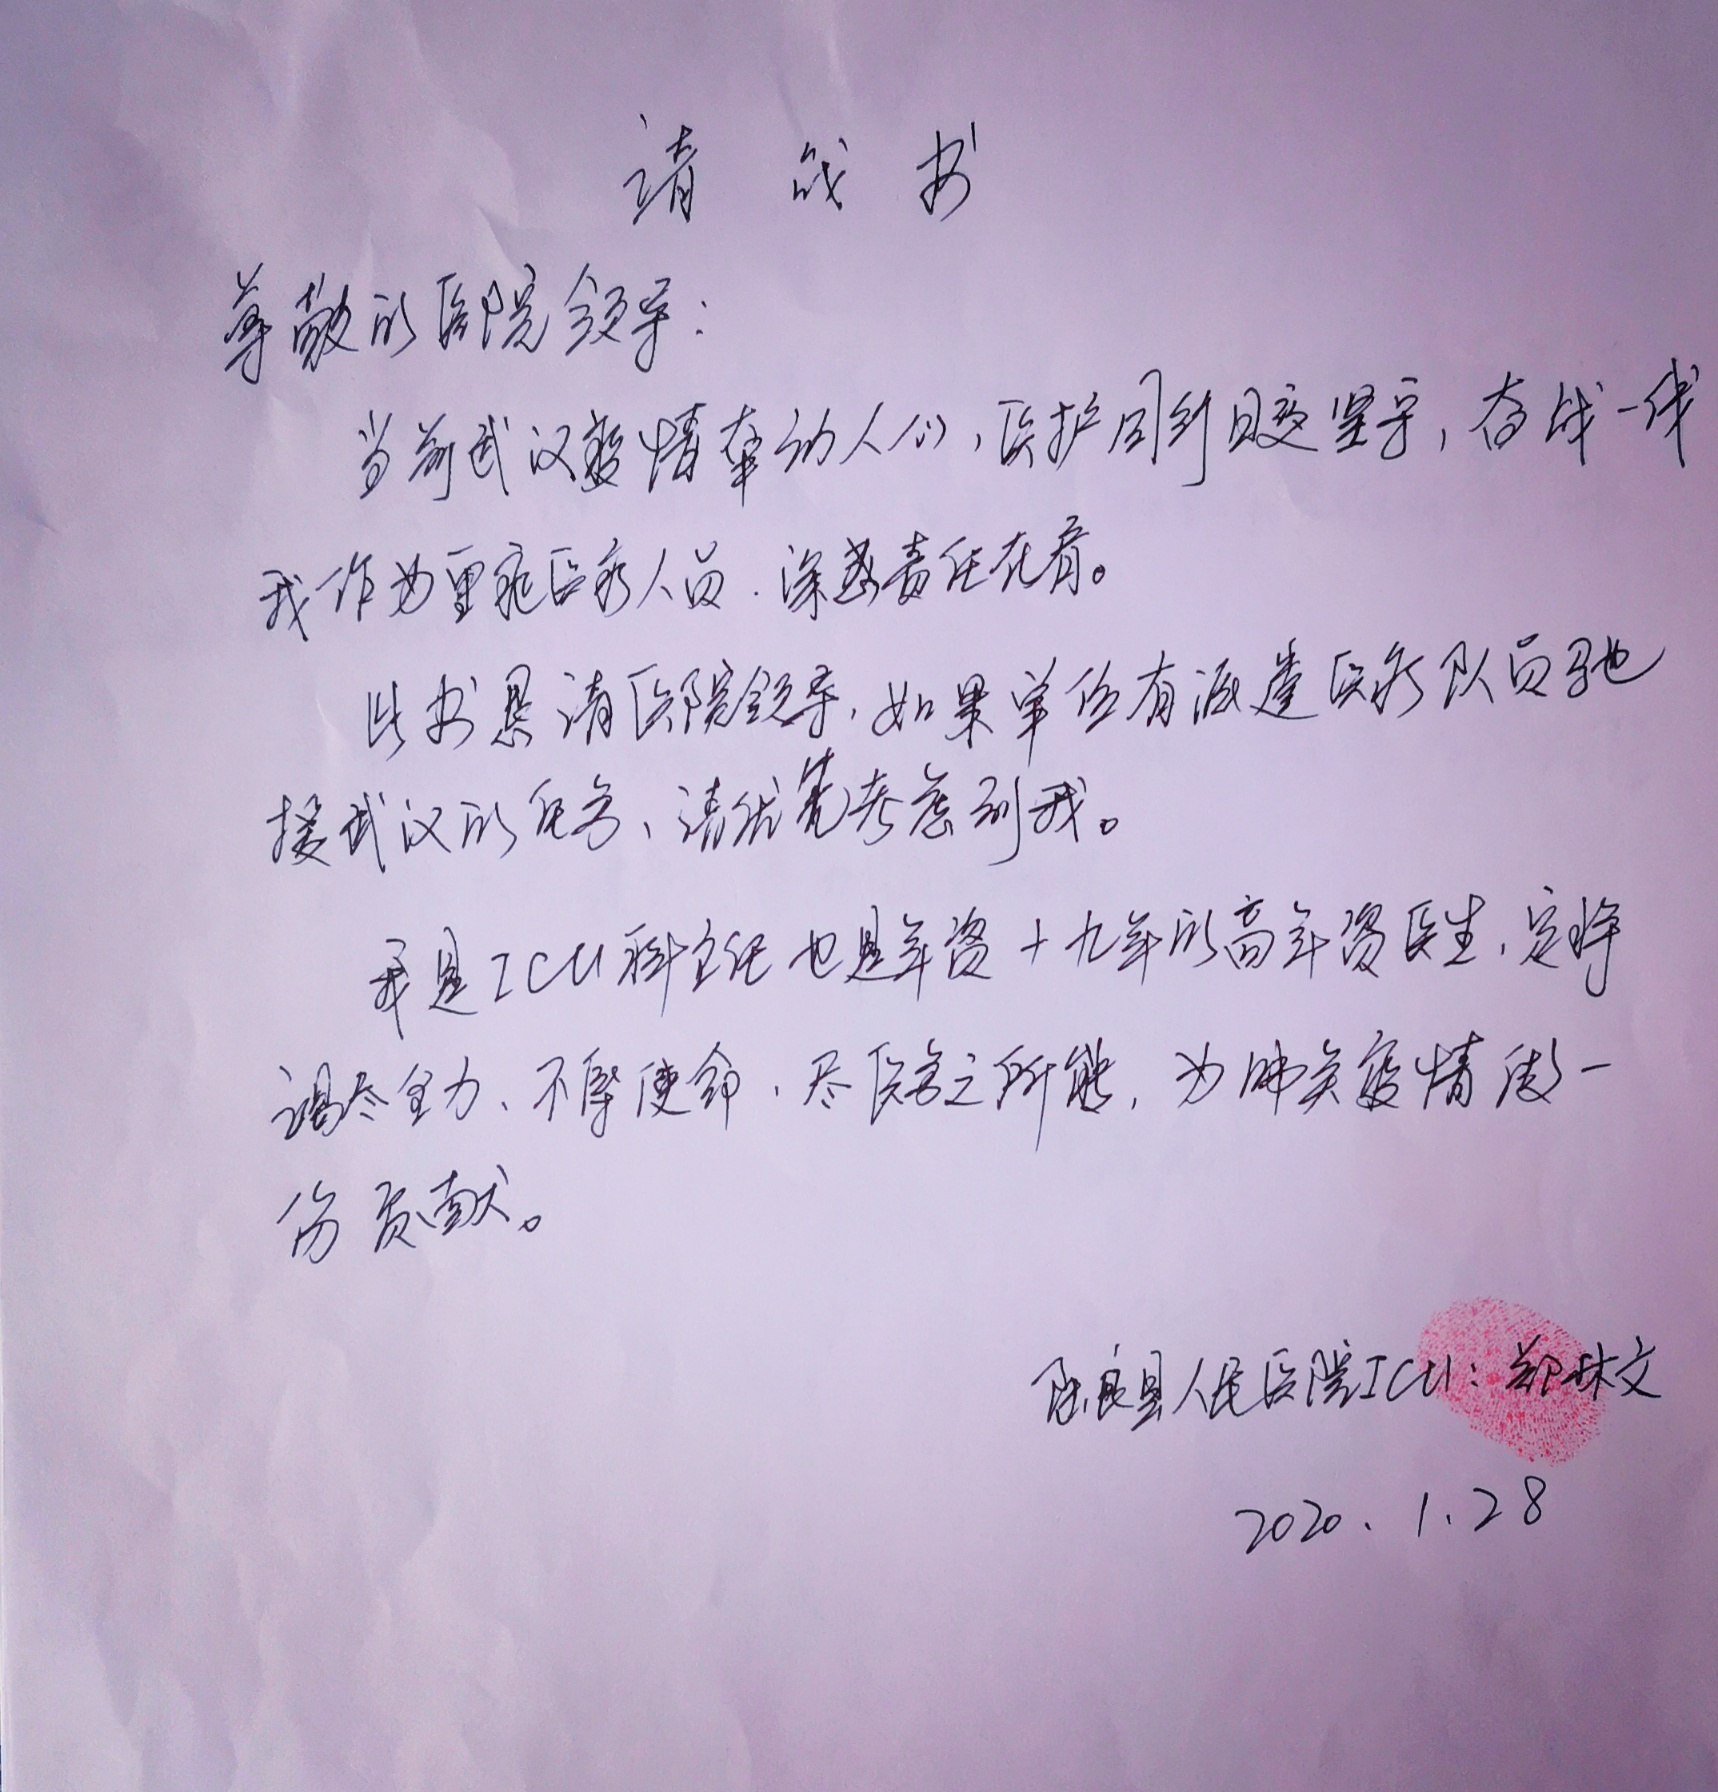 请战书
尊敬的医院领导：
当前武汉疫情牵动人心，医护同行日夜坚守，奋战一线
我作为重症医务人员，深感责任在肩。
此书恳请医院领导，如果单位有派遣医疗队员驰
援武汉的任务，请优先考虑到我。
我是ICU科主任也是年资十九年的高年资医生，定将
竭尽全力、不辱使命，尽医务之所能，为肺炎疫情做一
份贡献。
陆良县人民医院ICU：郑林文
2020.1.28